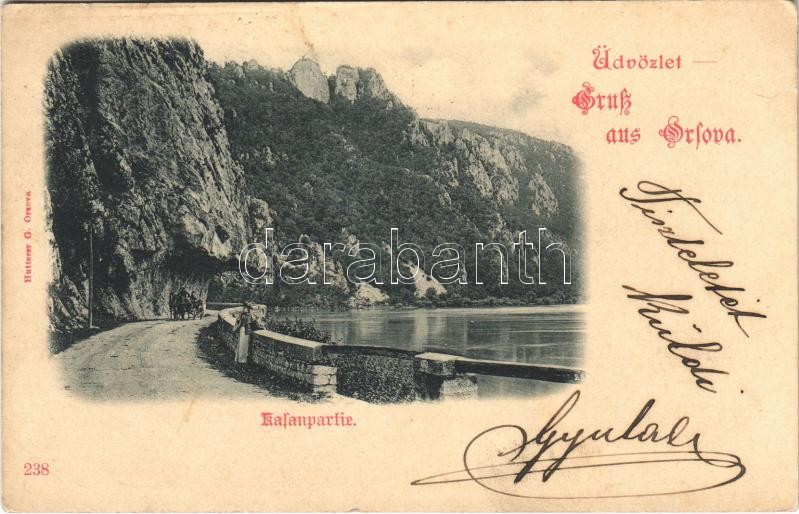 Üdvözlet —
Gruß
aus Orsova.
Hutterer G. Orsova
darabanth.com
Tiszteletét
Küldi
Gyula
Kasanpartie.
238